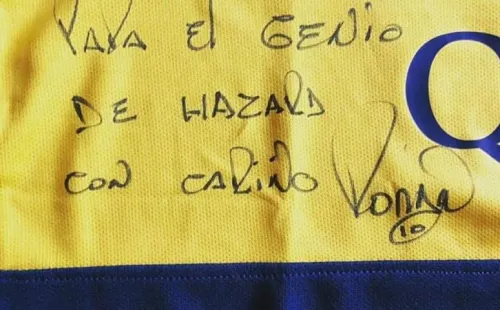 PARA El GENIO
DE HAZARD
CON CARIÑO Román
10
Q